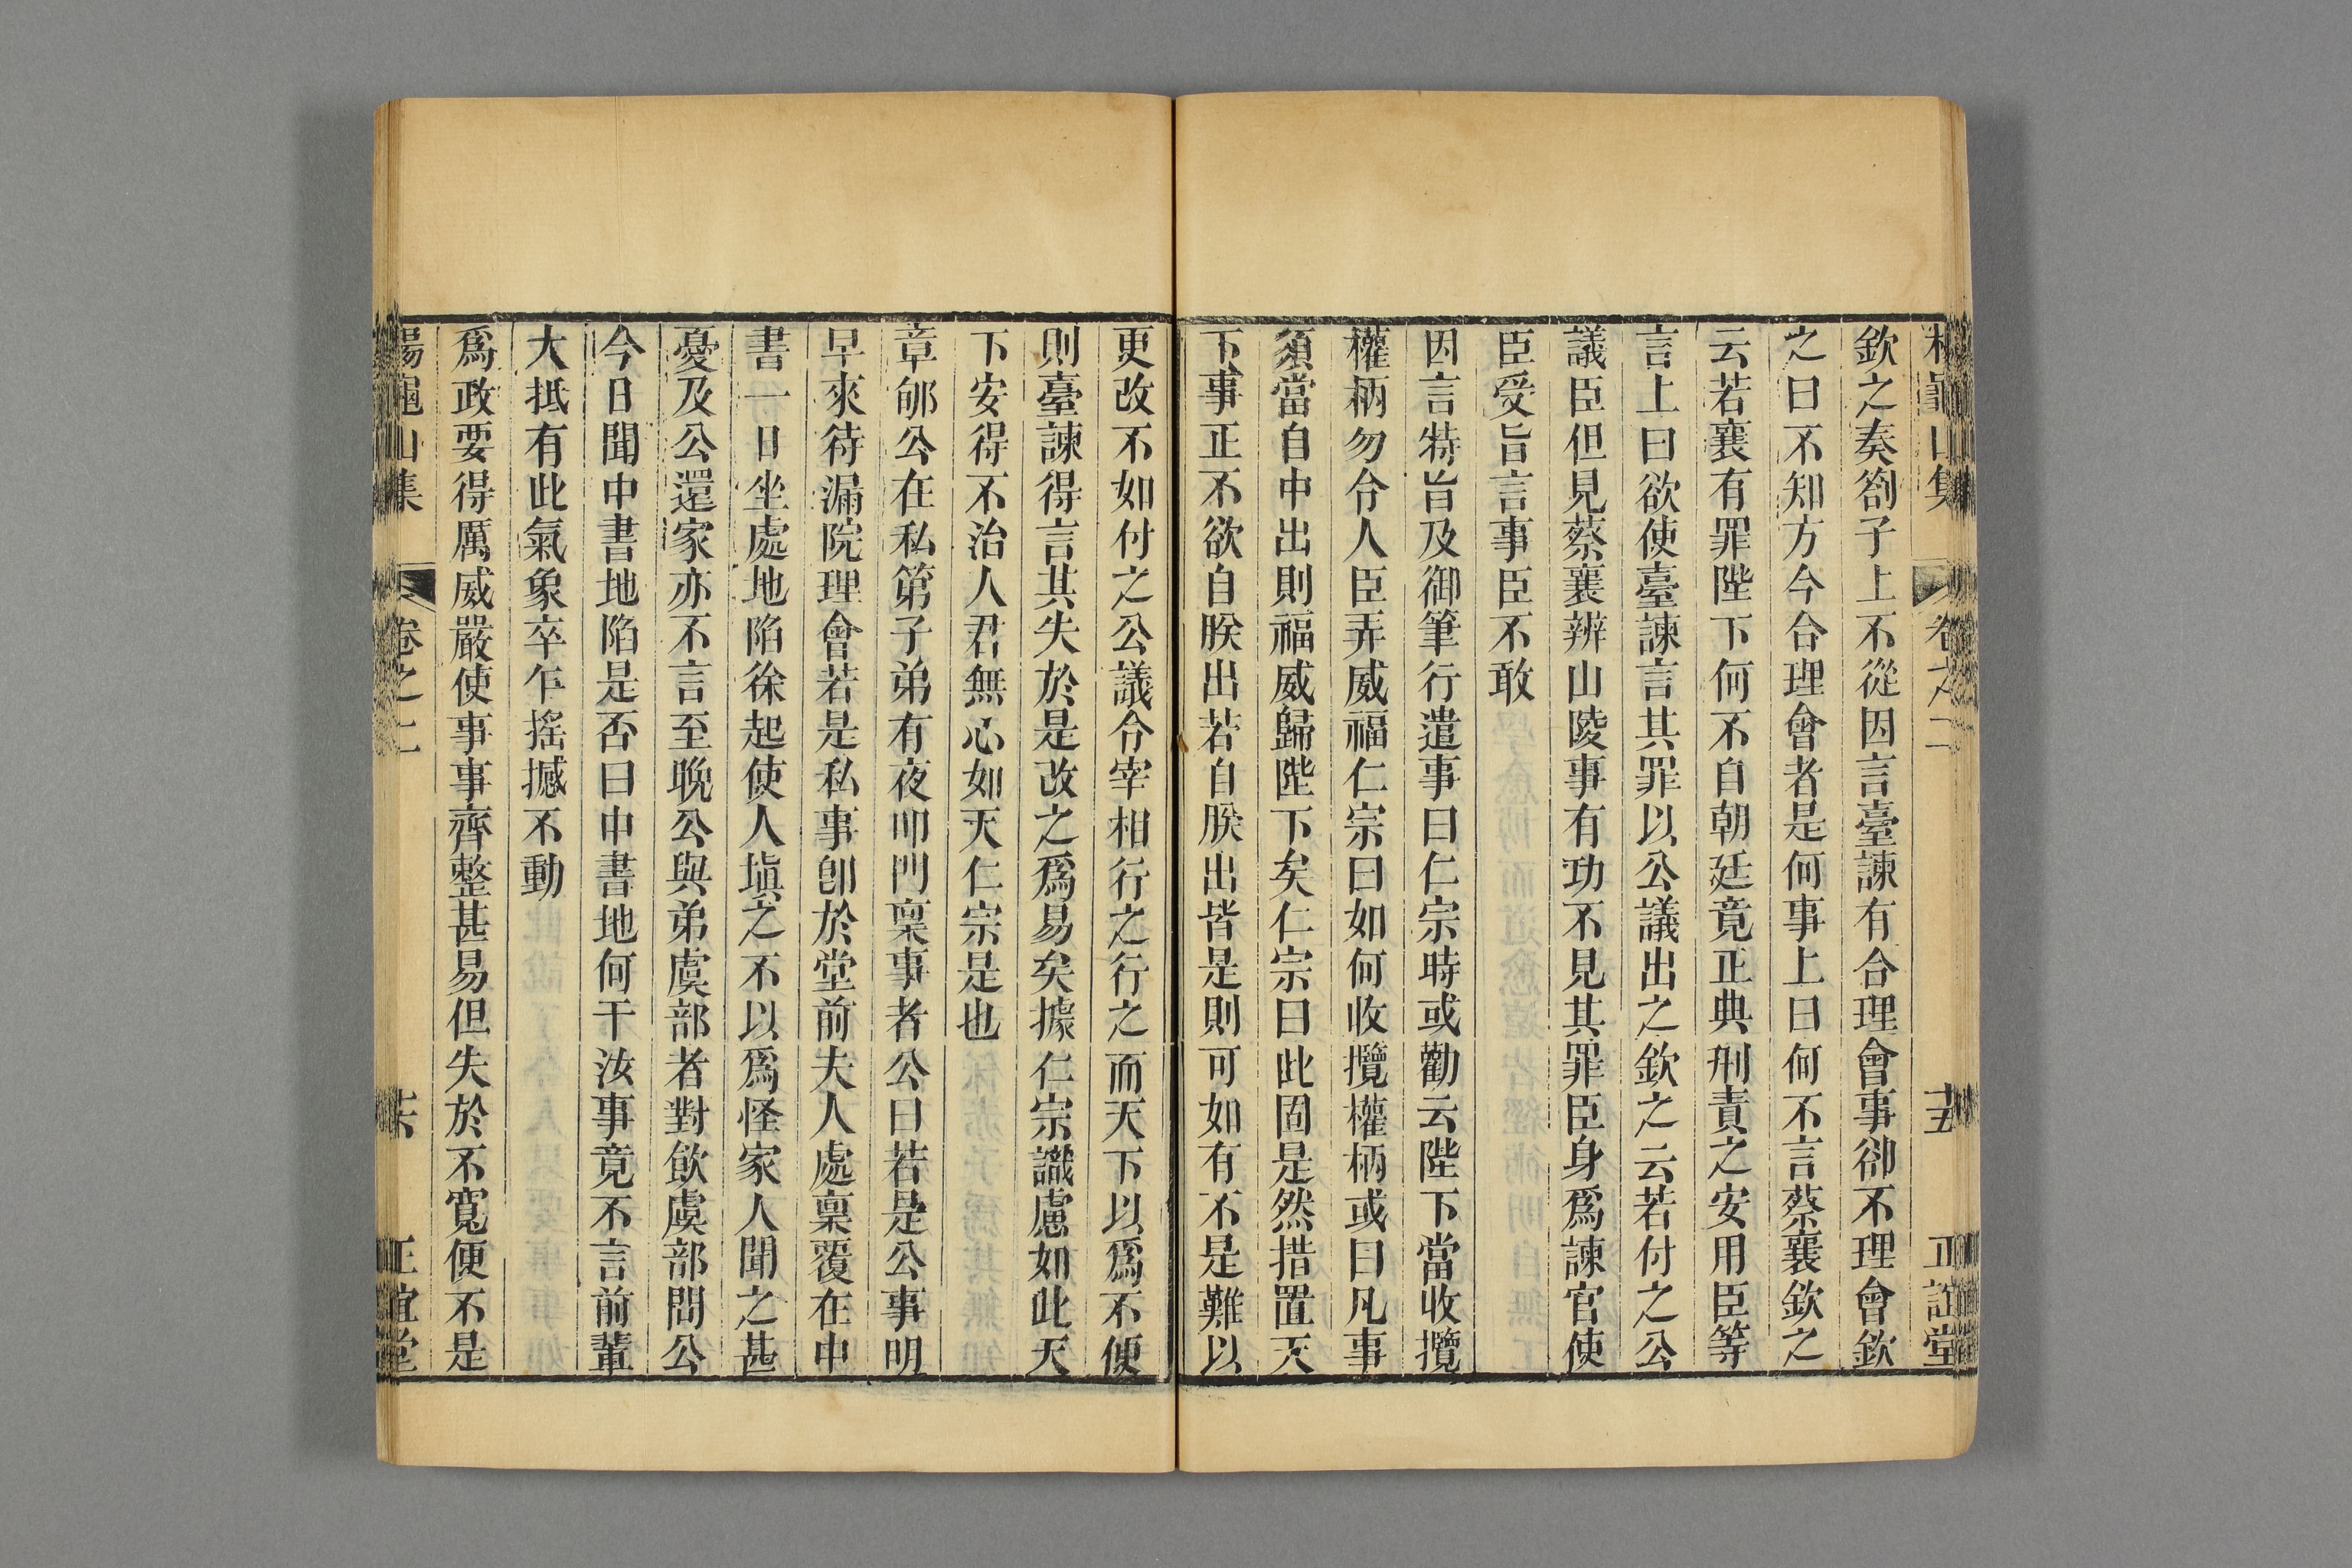 欽之奏劄子上不從因言臺諫有合理會事卻不理會欽
之曰不知方今合理會者是何事上曰何不言蔡襄欽之
云若襄有罪陛下何不自朝廷竟正典刑責之安用臣等
言上曰欲使臺諫言其罪以公議出之欽之云若付之公
議臣但見蔡襄辨山陵事有功不見其罪臣身爲諫官使
臣受旨言事臣不敢
因言特旨及御筆行遣事曰仁宗時或勸云陛下當收攬
權柄勿令人臣弄威福仁宗曰如何收攬權柄或曰凡事
須當自中出則福威歸陛下矣仁宗曰此固是然措置天
下事正不欲自朕出若自朕出皆是則可如有不是難以
更改不如付之公議令宰相行之行之而天下以爲不便
則臺諫得言其失於是改之爲易矣據仁宗識慮如此天
下安得不治人君無心如天仁宗是也
章郇公在私第子弟有夜叩門稟事者公曰若是公事明
早來待漏院理會若是私事卽於堂前夫人處稟覆在中
書一日坐處地陷徐起使人塡之不以爲怪家人聞之甚
憂及公還家亦不言至晚公與弟虞部者對飲虞部問公
今日聞中書地陷是否曰中書地何干汝事竟不言前輩
大抵有此氣象卒乍搖撼不動
爲政要得厲威嚴使事事齊整甚易但失於不寬便不是
楊龜山集 卷之二 十六 正誼堂